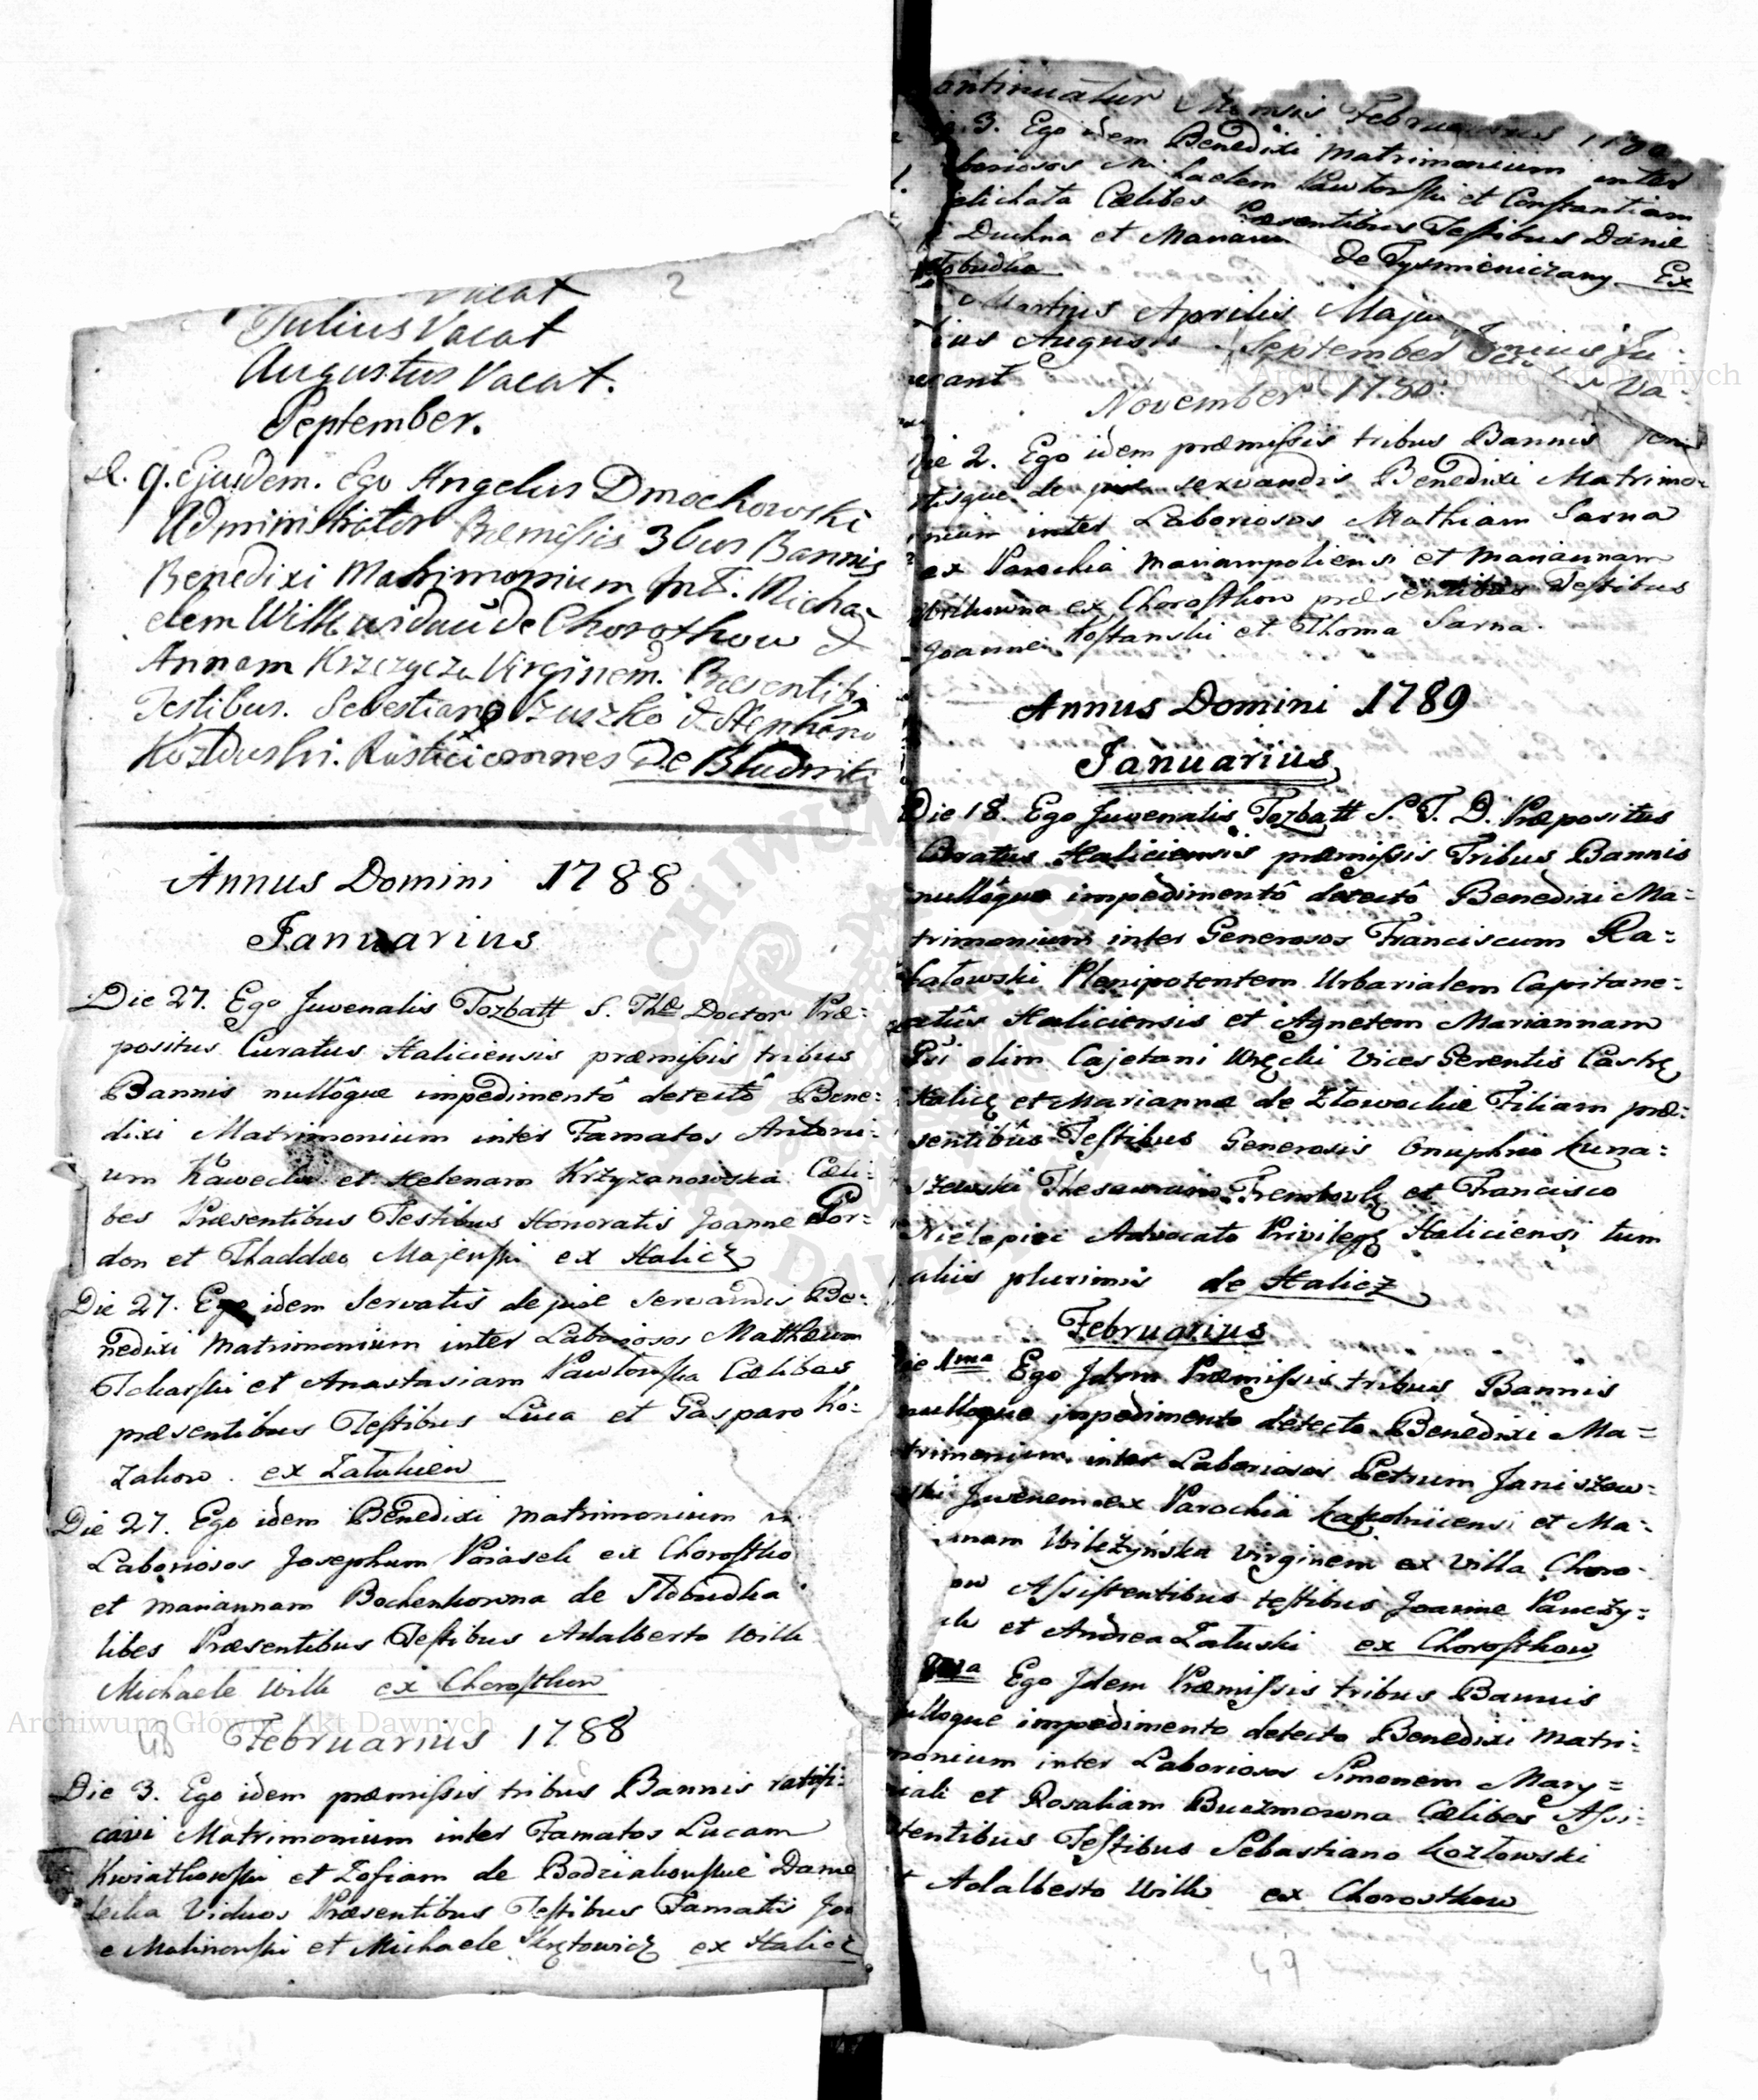 Vacat
Julius Vacat
Augustus Vacat.
September.
d. 9. Ejusdem. Ego Angelus Dmochowski
Administrator Præmissis 3bus Bannis
Benedixi Matrimonium Int. Micha-
elem Wilk viduũ de Chorosthow &
Annam Krzczycza Virginem. Præsentibs
Testibus. Sebestiano Szuszko & Stephano
Kozłduski. Rustici omnes De Bludniki
Annus Domini 1788
Januarius
Die 27. Ego Juvenalis Tozbatt S. Thæ Doctor Præ:
positus Curatus Haliciensis præmissis tribus
Bannis nullôque impedimentô detectô Bene:
dixi Matrimonium inter Famatos Antoni:
um Kawecki et Helenam Krzyzanowska Cæli:
bes Præsentibus Testibus Honoratis Joanne Gor:
don et Thaddæo Majewski ex Halicz
Die 27. Ego idem Servatis de jure Servandis Be:
nedixi Matrimonium inter Laboriosos Mathæum
et Anastasiam Pawłowska Cælibes
præsentibus Testibus Luca et Gasparo Ko:
zakow. ex Załukiew
Die 27. Ego idem Benedixi Matrimonium in
Laboriosos Josephum Poiasek ex Chorostko
et Mariannam Bochenkowna de Słobudka
libes Præsentibus Testibus Adalberto Wilk
Michaele Wilk ex Chorosthow
48 Februarius 1788
Die 3. Ego idem præmissis tribus Bannis ratifi:
cavi Matrimonium inter Famatos Lucam
Kwiatkowski et Zofiam de Bodziakowskie Dani
lecka Viduos Præsentibus Testibus Famatis Joa
e Malinowski et Michaele Krętowicz ex Halicz
2
ontinuatur Mensis Februarius
3. Ego idem Benedixi Matrimonium inter
boriosos Michaelem Pawłowski et Constantiam
elichata Cælibes Præsentibus Testibus Danie
Duchna et Mariano de Tysmieniczany Ex
Słobudka
Martius Aprilis Majus Junius Ju:
lius Augustus September Va:
cant
November 1788.
Die 2. Ego idem præmissis tribus Bannis
tisque de jure servandis Benedixi Matrimo:
nium inter Laboriosos Mathiam Sarna
ex Parochia Mariampoliensi et Mariannam
ex Chorosthow præsentibus Testibus
Joanne Kostanski et Thoma Sarna.
Annus Domini 1789
Januarius
Die 18. Ego Juvenalis Tozbatt S. T. D. Præpositus
Curatus Haliciensis præmissis Tribus Bannis
nullôque impedimentô detectô Benedixi Ma:
trimonium inter Generosos Franciscum Ra:
kałowski Plenipotentem Urbarialem Capitane:
atûs Haliciensis et Agnetem Mariannam
Gsi olim Cajetani Wręcki Vices Gerentis Castrę
Halicę et Mariannæ de Złowockie Filiam præ:
sentibûs Testibus Generosis Onuphrio Kuna:
szewski Thesaurario Trembowlę et Francisco
Nielepiec Advocato Privilegę Haliciensi tum
aliis plurimis de Halicz
Februarius
Die 1ma Ego Idem Præmissis tribus Bannis
nulloque impedimento detecto Benedixi Ma:
trimonium inter Laboriosos Petrum Janiszew:
ski Juvenem ex Parochia Kąkolniicensi et Ma:
innam Wilczyńska Virginem ex Villa Choro:
ow Assistentibus testibus Joanne Panczy:
ak et Andrea Załuski ex Chorosthow
Ego Idem Præmissis tribus Bannis
ulloque impedimento detecto Benedixi Matri:
monium inter Laboriosos Simonem Mary:
niak et Rosaliam Buczmowna Cælibes Assi:
stentibus Testibus Sebastiano Kozłowski
t Adalberto Wilk ex Chorosthow
49
Archiwum Główne Akt Dawnych
Archiwum Główne Akt Dawnych